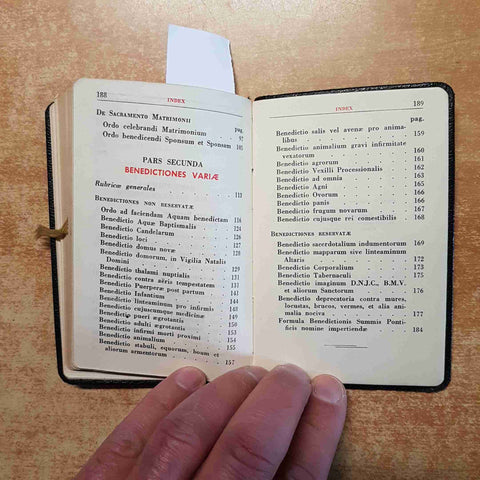 188
INDEX
De Sacramento Matrimonii
pag.
Ordo celebrandi Matrimonium . . . 97
Ordo benedicendi Sponsum et Sponsam 105
PARS SECUNDA
BENEDICTIONES VARIÆ
Rubricæ generales . . . . . . 113
Benedictiones non reservatæ
Ordo ad faciendam Aquam benedictam 116
Benedictio Aquæ Baptismalis . . 124
Benedictio Candelarum . . . 126
Benedictio loci . . . . .
Benedictio domus novæ . . .
Benedictio domorum, in Vigilia Natalis
Domini . . . . . 129
Benedictio thalami nuptialis . . 131
Benedictio contra aëris tempestatem
Benedictio Puerperæ post partum .
Benedictio Infantium . . .
Benedictio linteaminum pro infirmis
Benedictio cujuscumque medicinæ
Benedictio pueri ægrotantis . .
Benedictio adulti ægrotantis . .
Benedictio infirmi morti proximi
Benedictio animalium . . . 154
Benedictio stabuli, equorum, boum et
aliorum armentorum . . . . 157
INDEX
189
pag.
Benedictio salis vel avenæ pro anima-
libus . . . . . . 159
Benedictio animalium gravi infirmitate
vexatorum . . . . . 160
Benedictio agrorum . . . .
Benedictio Vexilli Processionalis .
Benedictio ad omnia . . . .
Benedictio Agni . . . . . 165
Benedictio Ovorum . . . . 166
Benedictio panis . . . . .
Benedictio frugum novarum . . 167
Benedictio cujusque rei comestibilis . 168
Benedictiones reservatæ
Benedictio sacerdotalium indumentorum 169
Benedictio mapparum sive linteaminum
Altaris . . . . . . 172
Benedictio Corporalium . . . 173
Benedictio Tabernaculi . . . 175
Benedictio imaginum D.N.J.C., B.M.V.
et aliorum Sanctorum . . . 176
Benedictio deprecatoria contra mures,
locustas, brucos, vermes, et alia ani-
malia nociva . . . . . 177
Formula Benedictionis Summis Ponti-
ficis nomine impertiendæ . . . 184